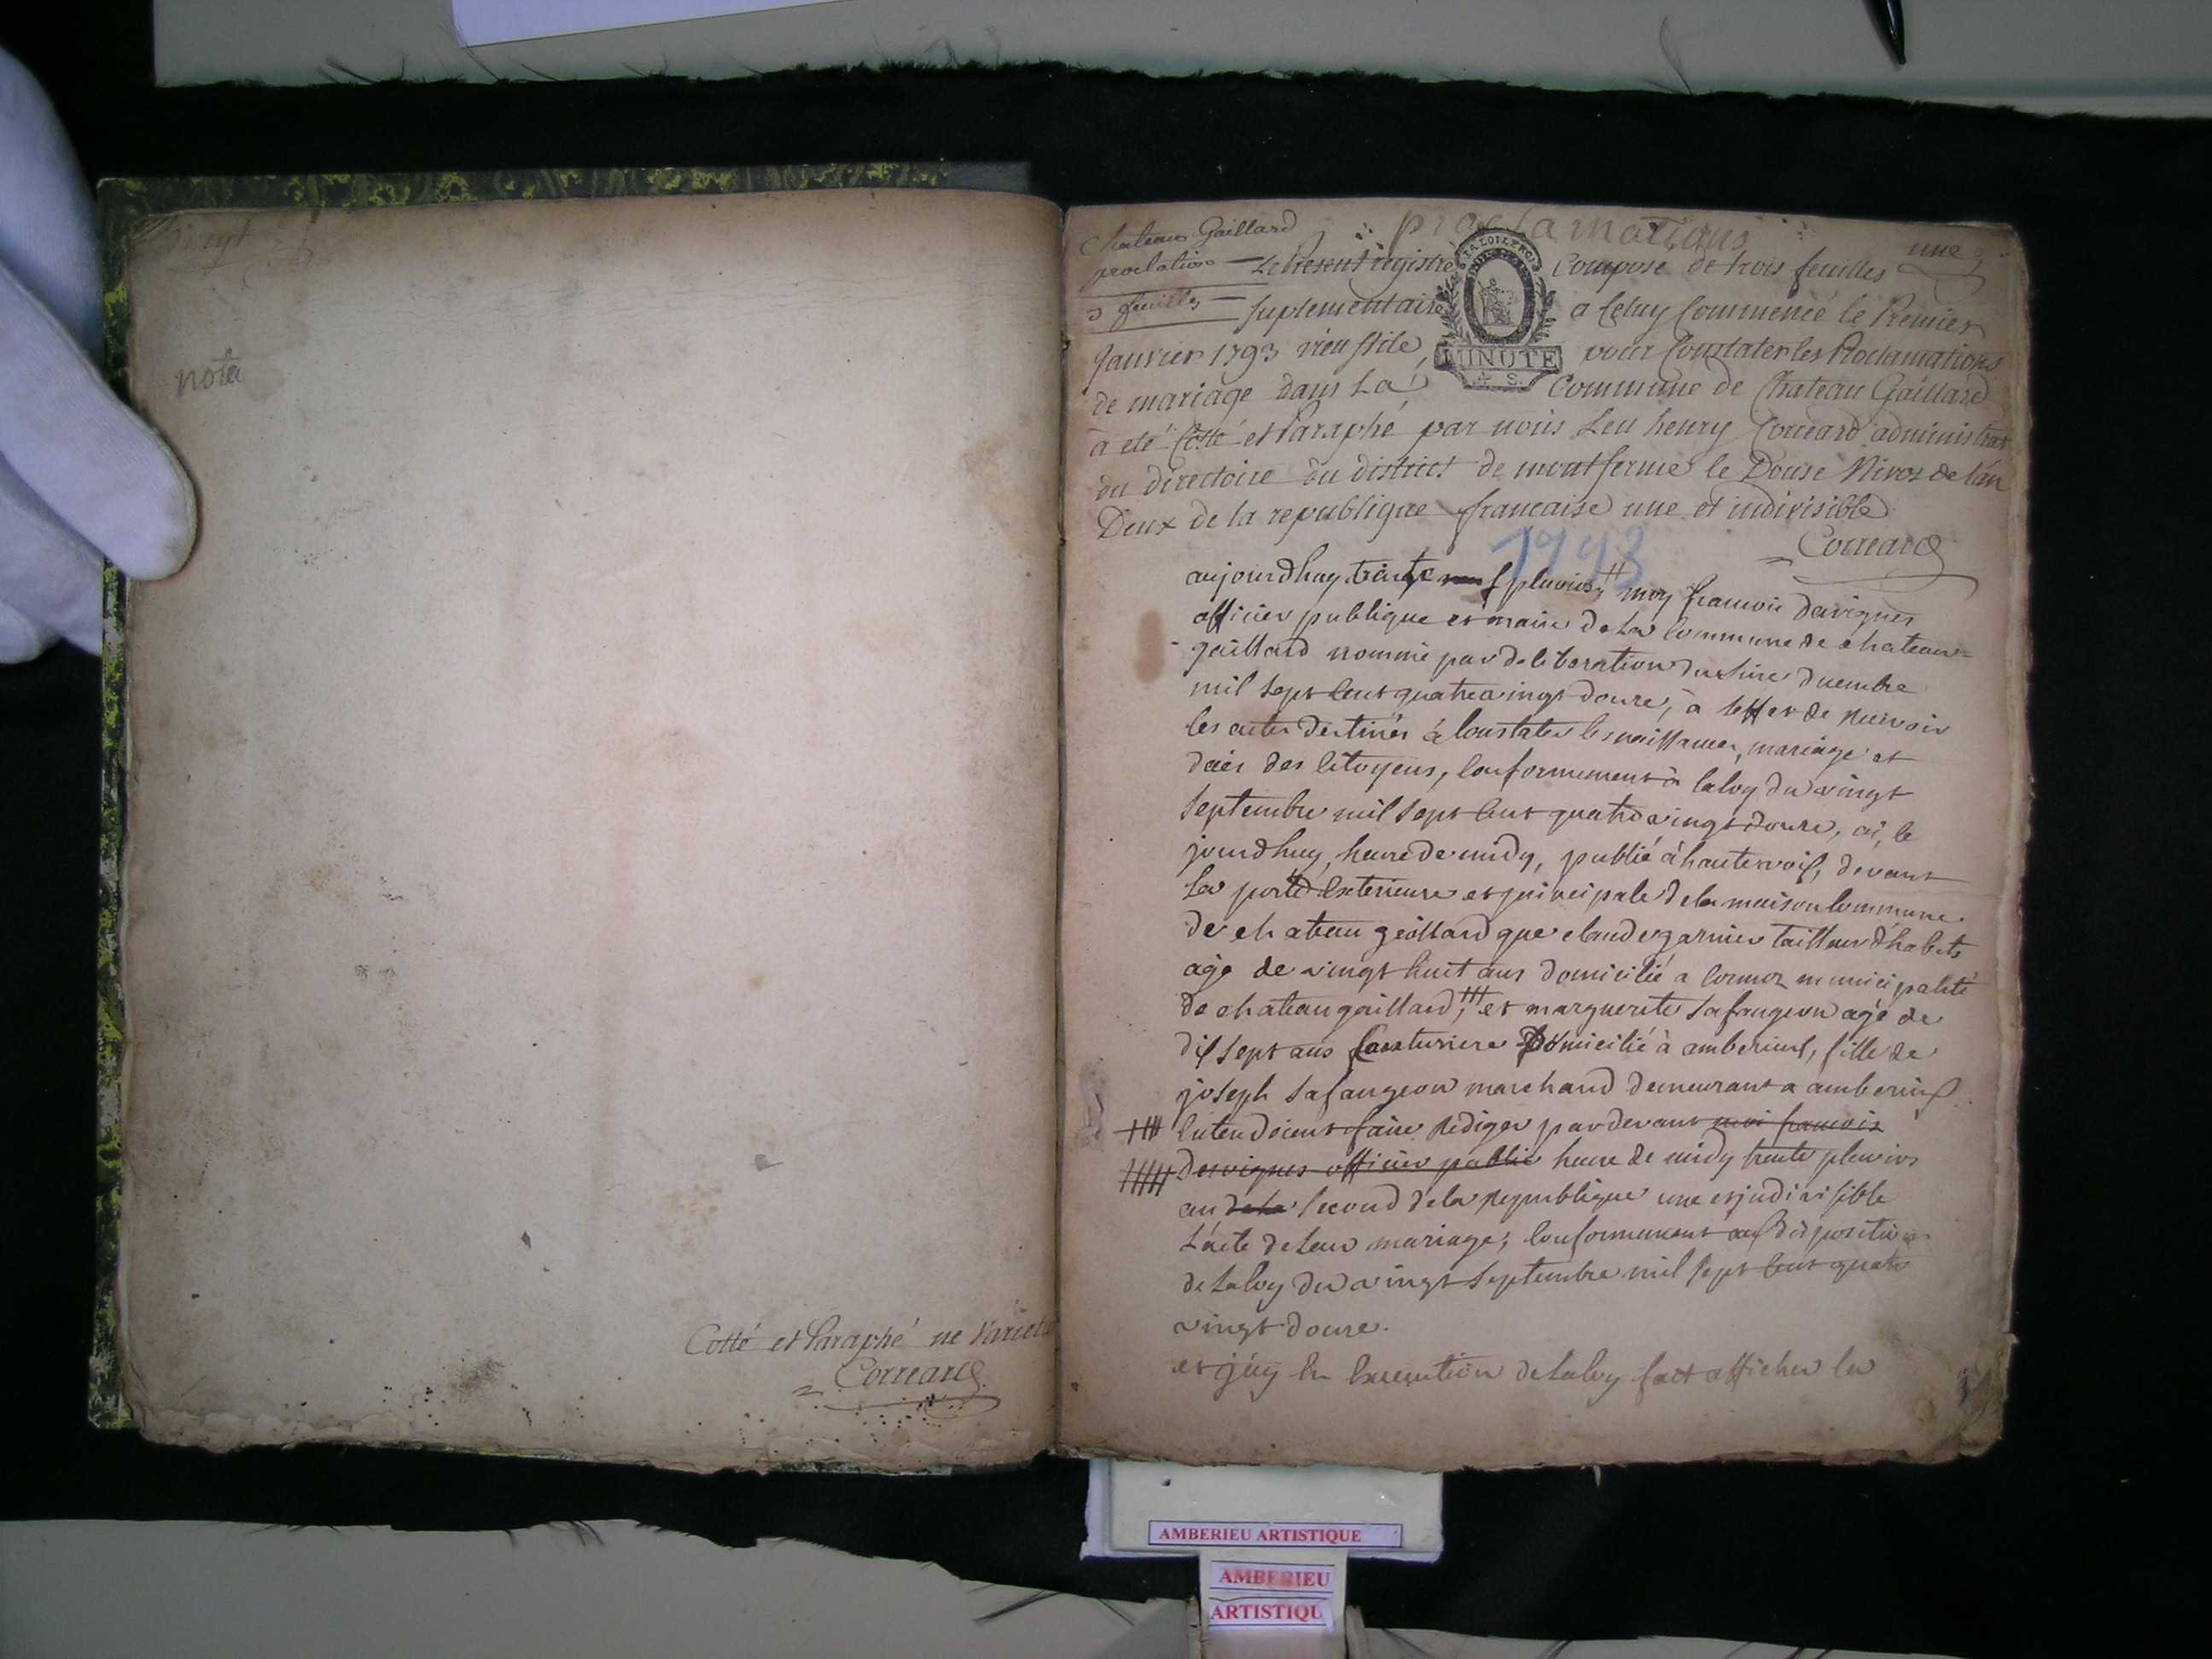 nota
Cotté et Paraphé ne Varietur
Correard
Chateau Gaillard
proclamations
une
proclation — Le Present registre Composé de trois feuilles
3 feuilles — suplementaire a Celuy Commencé le Premier
Janvier 1793 vieu stile, pour Constater les Proclamations
de mariage dans La Commune de Chateau Gaillard
a eté Cotté et Paraphé par nous Leu henry Correard administrat
du directoire du district de montferme le Douse Nivos de l'an
Deux de la republique francaise une et indivisible
Correard
LA LOI LE ROI
MINUTE
4 S.
1793
aujourdhuy trente pluvios, moy francois Desvignes
officier publique et maire de la Commune de chateau=
gaillard nommé par deliberation du
mil sept cent quatre vingt douze, a leffet de recevoir
les actes destinés a Constater les naissances, mariage et
décès des Citoyens, Conformement à la loy du vingt
septembre mil sept cent quatre vingt douze, ai, ce
jourdhuy, heure de midy, publié à haute voix, devant
la porte Exterieure et principale de la maison Commune
de chateau gaillard que claude garnier tailleur d'habits
agé de vingt huit ans domicilié a Cormoz municipalité
de chateau gaillard, et marguerite Safangeon agé de
dix sept ans Couturiere Domicilié à amberieux, fille de
joseph Safangeon marchand demeurant a amberieux
Entendoient faire Rediger par devant moi francois
Desvignes officier public heure de midy trente pluvios
an de la second de la Republique une et indivisible
L'acte de Leur mariage, Conformement aux disposition
de La loy du vingt septembre mil sept cent quatre
vingt douze.
et j'ay En Execution de La loy fait afficher la
AMBERIEU ARTISTIQUE
AMBERIEU
ARTISTIQU